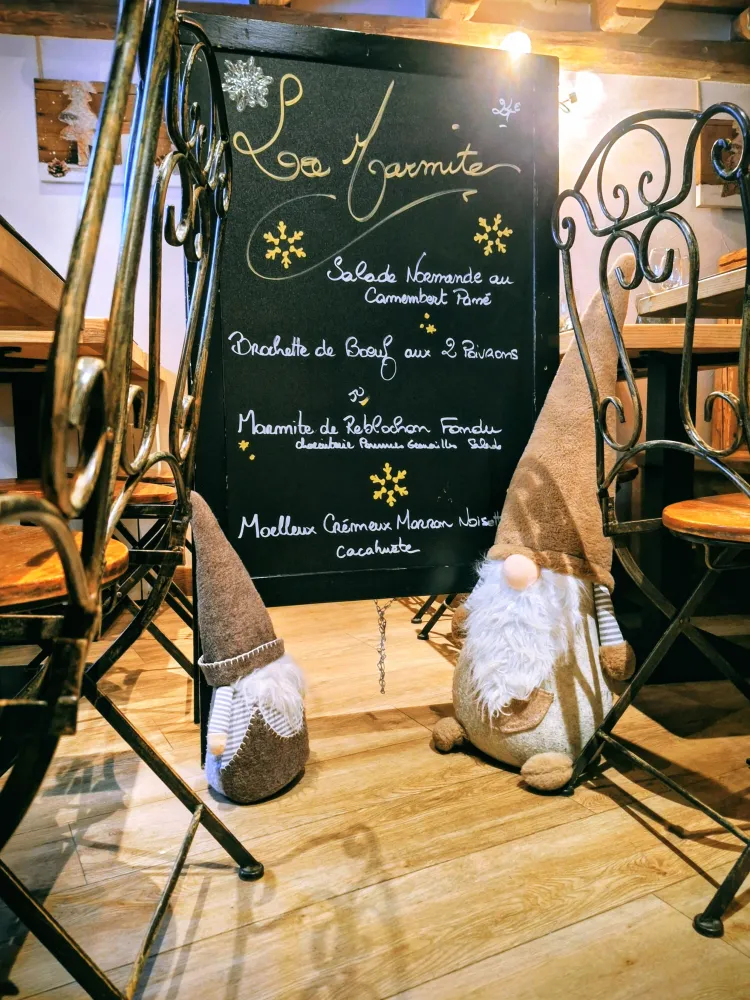 La Marmite
24€
Salade Normande au
Camembert Pané
Brochette de Boeuf aux 2 Poivrons
ou
Marmite de Reblochon Fondu
charcuterie Pommes Grenailles Salade
Moelleux Crémeux Marron Noise
cacahuète